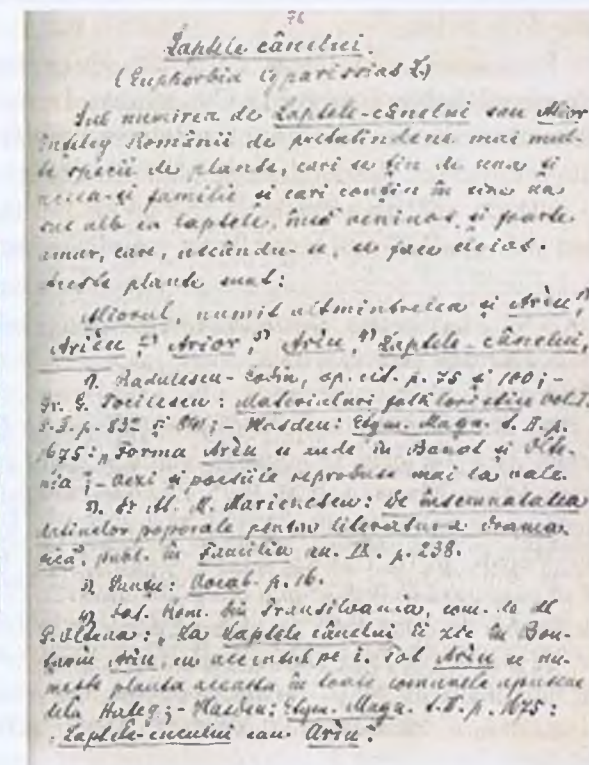 76
Laptele cânelui.
(Euphorbia Cyparissias L.)
Sub numirea de Laptele-cânelui sau Alior
înțeleg Românii de pretutindene mai mul-
te specii de plante, cari se țin de una și
aceea-și familie și cari conțin în sine un
suc alb ca laptele, însă veninos și foarte
amar, care, uscându-se, se face cleios.
Aceste plante sunt:
Aliorul, numit altmintrelea și Ariu,
Arieu, Arior, 3) Ariu, 4) Laptele-cânelui,
1). Rădulescu-Codin, op. cit. p. 75 și 100; –
Gr. G. Tocilescu: Materialuri folkloristice vol. I.
P. I. p. 832 și 841; – Hasdeu: Etym. Magn. t. II. p.
1675: „Forma Ariu se aude în Banat și Olte-
nia"; – aezi și poesiile reproduse mai la vale.
2). At. M. Marienescu: De însemnătatea
datinelor poporale pentru literatura drama-
tică, publ. în Familia an. IX. p. 238.
3). Vocab. p. 16.
4). Rom. din Transilvania, com. de dl
La Laptele cânelui îi zic în
Ariu, cu accentul pe i. Tot Ariu se nu-
mește planta aceasta în toate comunele apusene
dela Hațeg; – Hasdeu: Etym. Magn. t. II. p. 1675:
Laptele-cucului sau Ariu.